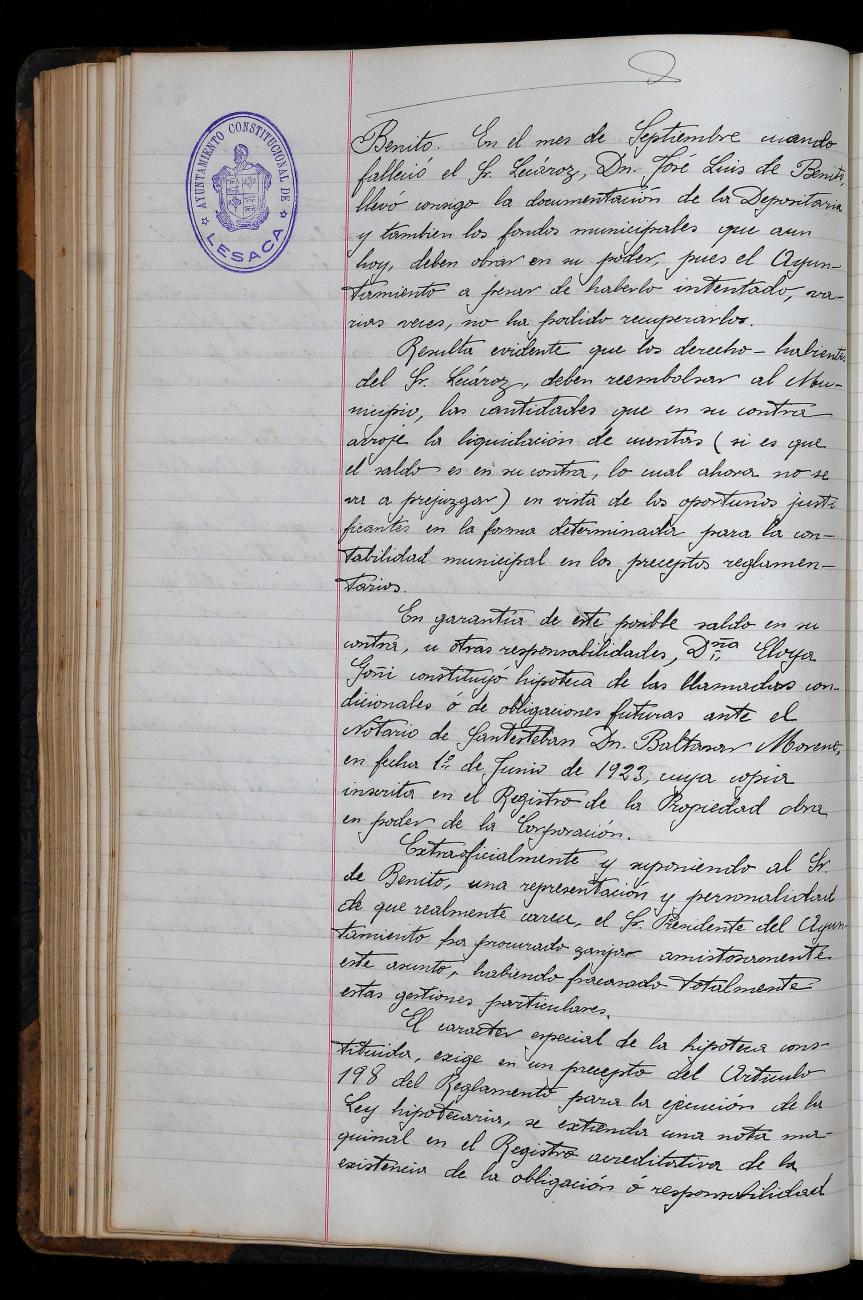 AYUNTAMIENTO CONSTITUCIONAL DE
LESACA
Benito. En el mes de Septiembre cuando
falleció el Sr. Lecároz, Dn. José Luis de Benito,
llevó consigo la documentación de la Depositaria
y tambien los fondos municipales que aun
hoy, deben obrar en su poder, pues el Ayun-
tamiento a pesar de haberlo intentado, va-
rias veces, no ha podido recuperarlos.
Resulta evidente que los derecho-habientes
del Sr. Lecároz, deben reembolsar al Mu-
nicipio, las cantidades que en su contra
arroje la liquidación de cuentas (si es que
el saldo es en su contra, lo cual ahora no se
va a prejuzgar) en vista de los oportunos justi
ficantes en la forma determinada para la con-
tabilidad municipal en los preceptos reglamen-
tarios.
En garantía de este posible saldo en su
contra, u otras responsabilidades, Dña Eloya
Goñi constituyó hipoteca de las llamadas con-
dicionales ó de obligaciones futuras ante el
Notario de Santesteban Dn. Baltasar Moreno,
en fecha 1º de Junio de 1923, cuya copia
inscrita en el Registro de la Propiedad obra
en poder de la Corporación.
Extraoficialmente y suponiendo al Sr.
de Benito, una representación y personalidad
de que realmente carece, el Sr. Presidente del Ayun-
tamiento ha procurado zanjar amistosamente
este asunto, habiendo fracasado totalmente
estas gestiones particulares.
El caracter especial de la hipoteca cons-
tituida, exige en un precepto del Artículo
198 del Reglamento para la ejecución de la
Ley hipotecaria, se extienda una nota ma-
quinal en el Registro acreditativa de la
existencia de la obligación ó responsabilidad